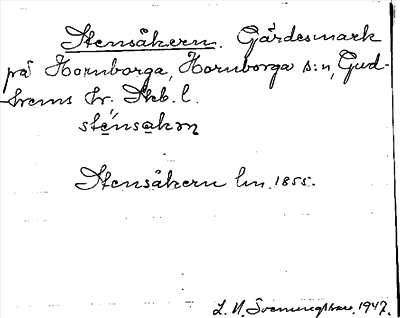 Stensåkern. Gärdesmark
på Hornborga, Hornborga s:n, Gud-
hems hr. Skb. l.
sténsakɔn
Stensåkern lm. 1855.
L. N. 1947.